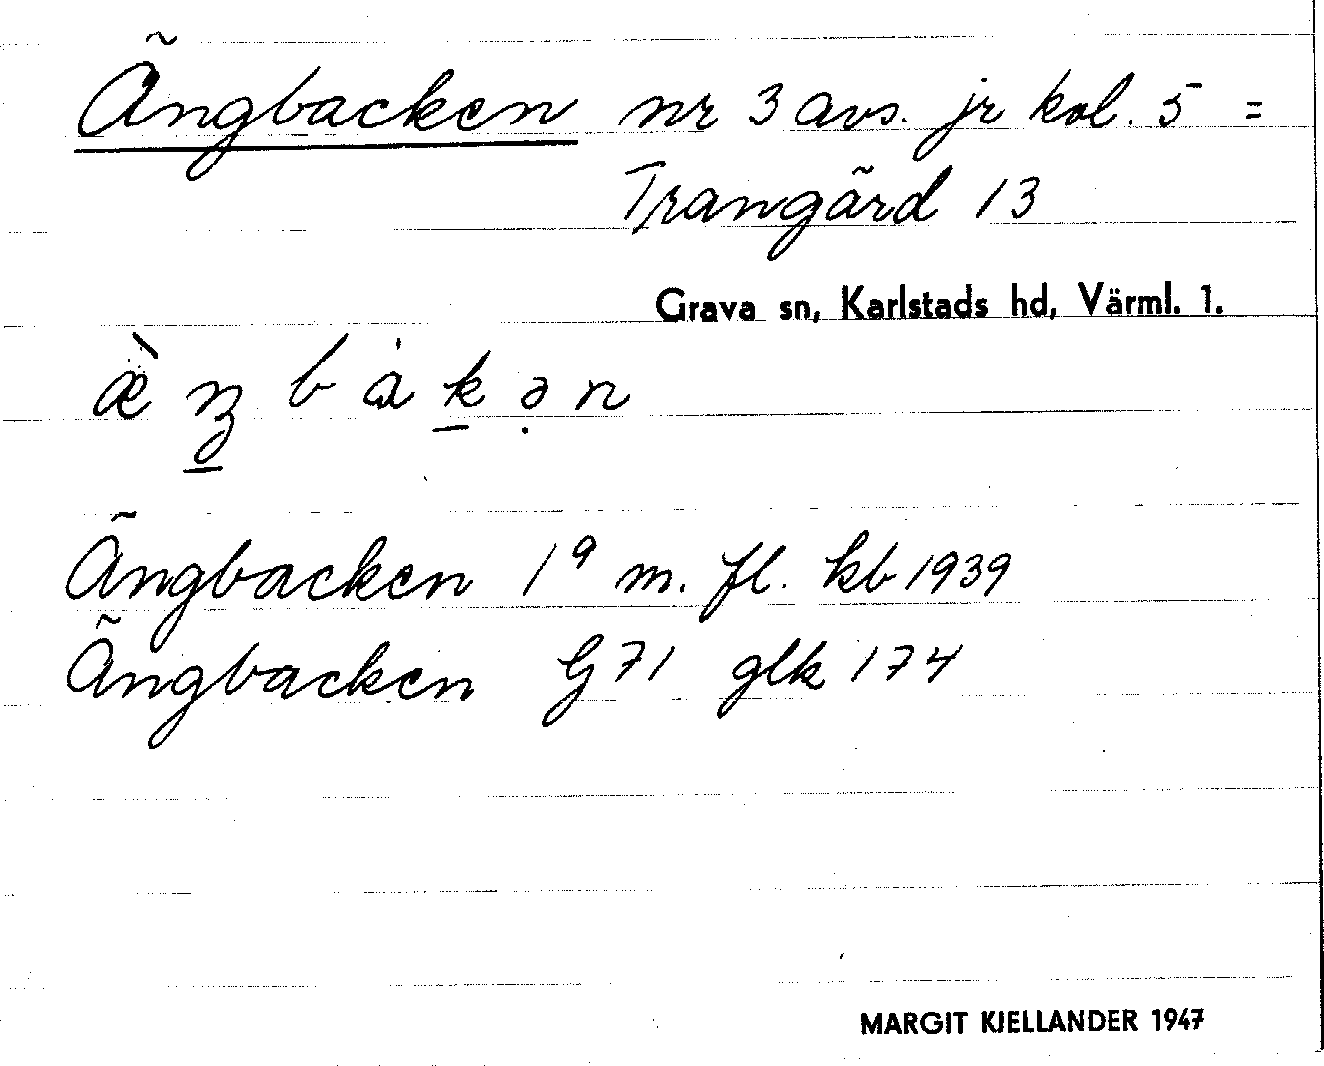 Ängbacken nr 3 avs. jr kol. 5 =
Trangärd 13
Grava sn, Karlstads hd, Värml. 1.
æ̀ ŋ b à k ə n
Ängbacken 1⁹ m. fl. kb 1939
Ängbacken G 71 glk 174
MARGIT KJELLANDER 1947